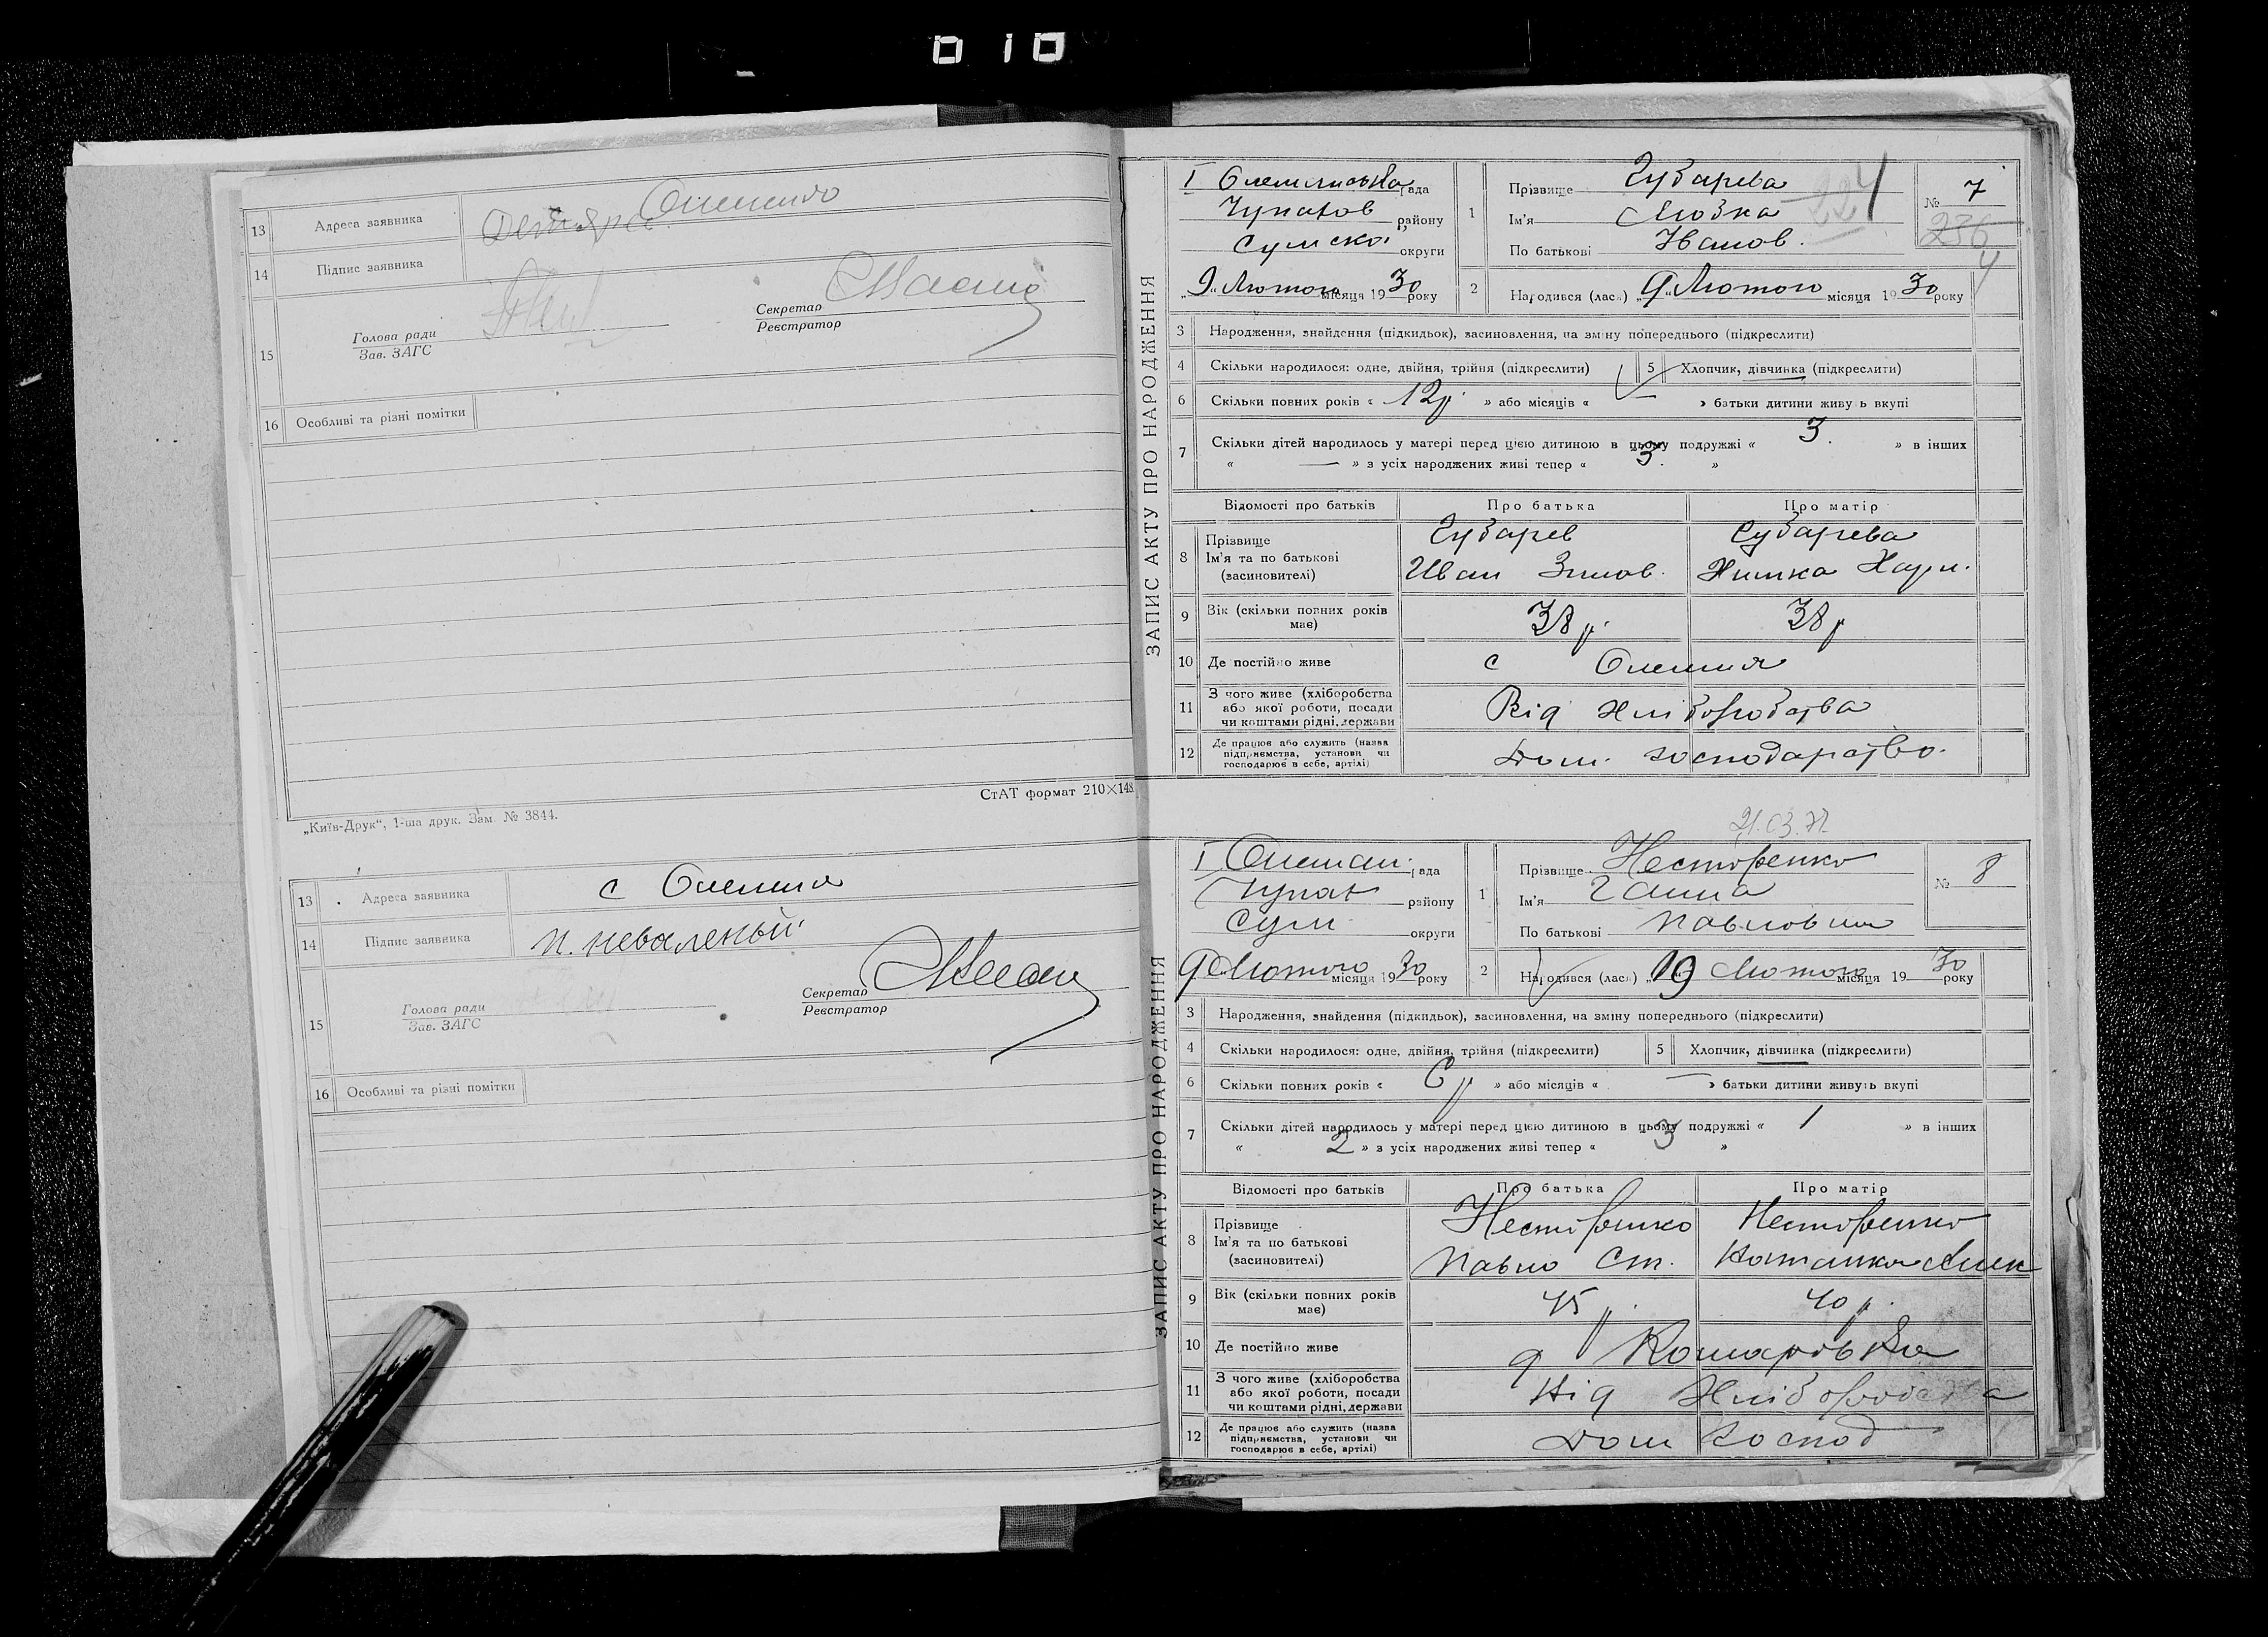 010
13 Адреса заявника
14 Підпис заявника
15 Голова ради
Зав. ЗАГС
Секретар
Реєстратор
16 Особливі та різні помітки
СтАТ формат 210×148.
„Київ-Друк“, 1-ша друк. Зам. № 3844.
13 Адреса заявника с Олешня
14 Підпис заявника
15 Голова ради
Зав. ЗАГС
Секретар
Реєстратор
16 Особливі та різні помітки
ЗАПИС АКТУ ПРО НАРОДЖЕННЯ
I рада
Чупахов району
Сумської округи
„9“ Лютого місяця 1930 року
1 Прізвище Губарева
Ім'я
По батькові Іванов.
№ 7
224
236
4
2 Народився (лась) „9“ Лютого місяця 1930 року
3 Народження, знайдення (підкидьок), засиновлення, на зміну попереднього (підкреслити)
4 Скільки народилося: одне, двійня, трійня (підкреслити) 5 Хлопчик, дівчинка (підкреслити)
6 Скільки повних років « 12 р. » або місяців « — » батьки дитини живуть вкупі
7 Скільки дітей народилось у матері перед цією дитиною в цьому подружжі « 3. » в інших
« — » з усіх народжених живі тепер « 3. »
Відомості про батьків Про батька Про матір
8 Прізвище Губарев Губарева
Ім'я та по батькові
(засиновителі) Иван Зинов.
9 Вік (скільки повних років має) 38 р. 38 р
10 Де постійно живе с Олешня
11 З чого живе (хліборобства або якої роботи, посади чи коштами рідні, держави Від хліборобства
12 Де працює або служить (назва підприємства, установи чи господарює в себе, артілі) Дом. господарство.
21.03.72
ЗАПИС АКТУ ПРО НАРОДЖЕННЯ
I Олешан. рада
Чупах району
Сум округи
9 Лютого місяця 1930 року
1 Прізвище Несторенко
Ім'я Ганна
По батькові Павловна
№ 8
2 Народився (лась) „ Лютого місяця 1930 року
3 Народження, знайдення (підкидьок), засиновлення, на зміну попереднього (підкреслити)
4 Скільки народилося: одне, двійня, трійня (підкреслити) 5 Хлопчик, дівчинка (підкреслити)
6 Скільки повних років « 6 р » або місяців « — » батьки дитини живуть вкупі
7 Скільки дітей народилось у матері перед цією дитиною в цьому подружжі « 1 » в інших
« 2 » з усіх народжених живі тепер « 3 »
Відомості про батьків Про батька Про матір
8 Прізвище Несторенко Несторенко
Ім'я та по батькові
(засиновителі) Павло Ст. Наталка
9 Вік (скільки повних років має) 45 р. 40 р.
10 Де постійно живе Комаровка
11 З чого живе (хліборобства або якої роботи, посади чи коштами рідні, держави Від хліборобства
12 Де працює або служить (назва підприємства, установи чи господарює в себе, артілі) Дом Господ